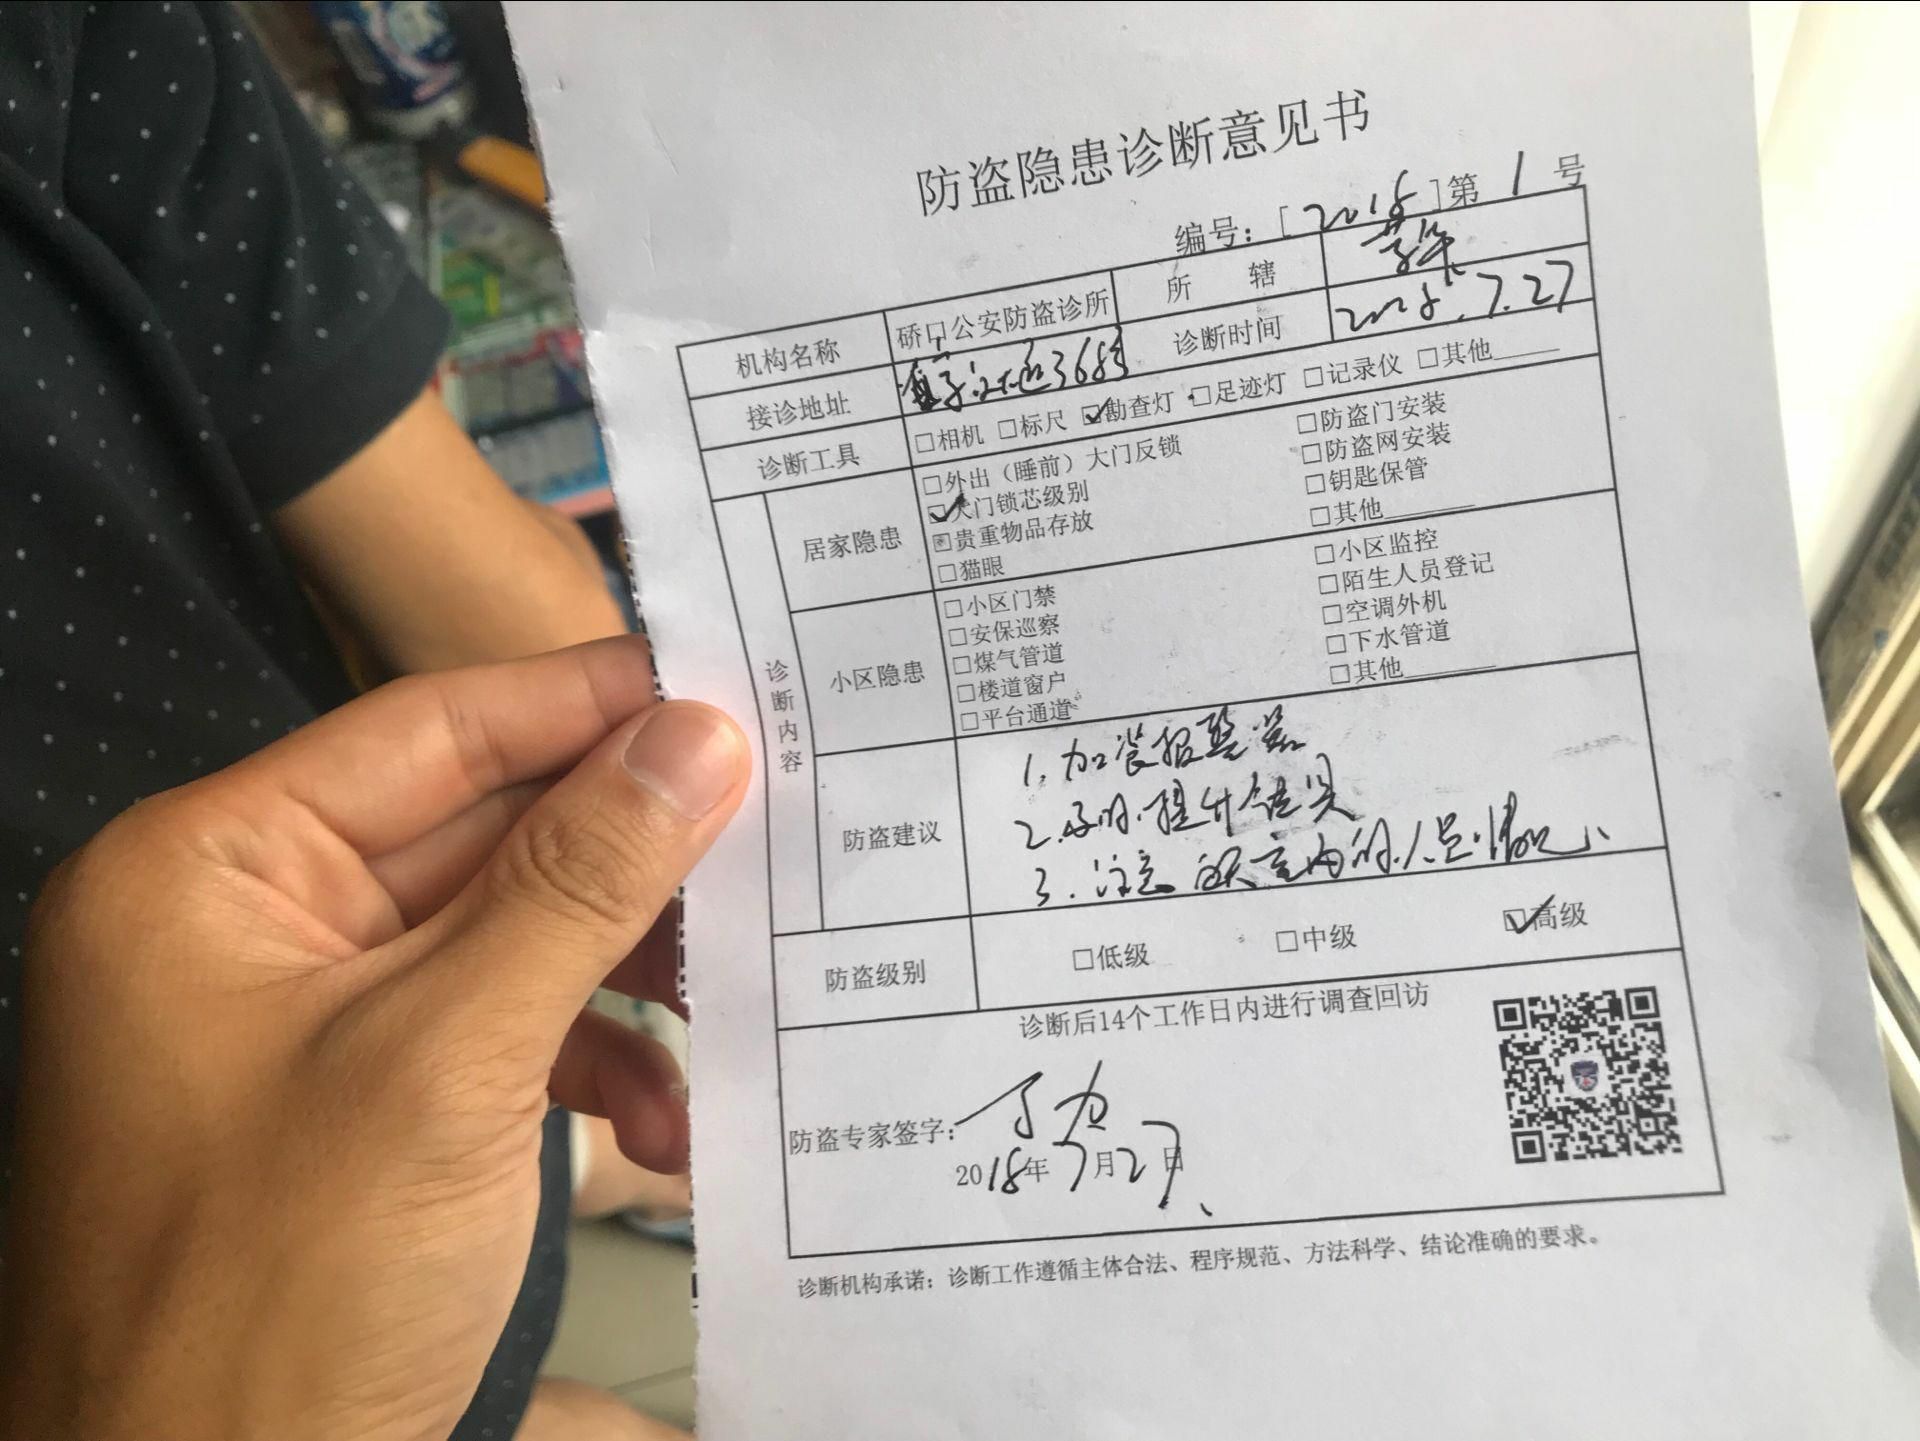 防盗隐患诊断意见书
编号：[2018]第 1 号
机构名称 硚口公安防盗诊所 所 辖
接诊地址 368号 诊断时间 2018.7.27
诊断工具 □相机 □标尺 ☑勘查灯 □足迹灯 □记录仪 □其他____
诊断内容
居家隐患
□外出（睡前）大门反锁 □防盗门安装
☑大门锁芯级别 □防盗网安装
□贵重物品存放 □钥匙保管
□猫眼 □其他______
小区隐患
□小区门禁 □小区监控
□安保巡察 □陌生人员登记
□煤气管道 □空调外机
□楼道窗户 □下水管道
□平台通道 □其他______
防盗建议
1.加装报警器
2.及时提升锁具
3.注意 室内的人员情况
防盗级别 □低级 □中级 ☑高级
诊断后14个工作日内进行调查回访
防盗专家签字：丁力
2018年7月27日
诊断机构承诺：诊断工作遵循主体合法、程序规范、方法科学、结论准确的要求。